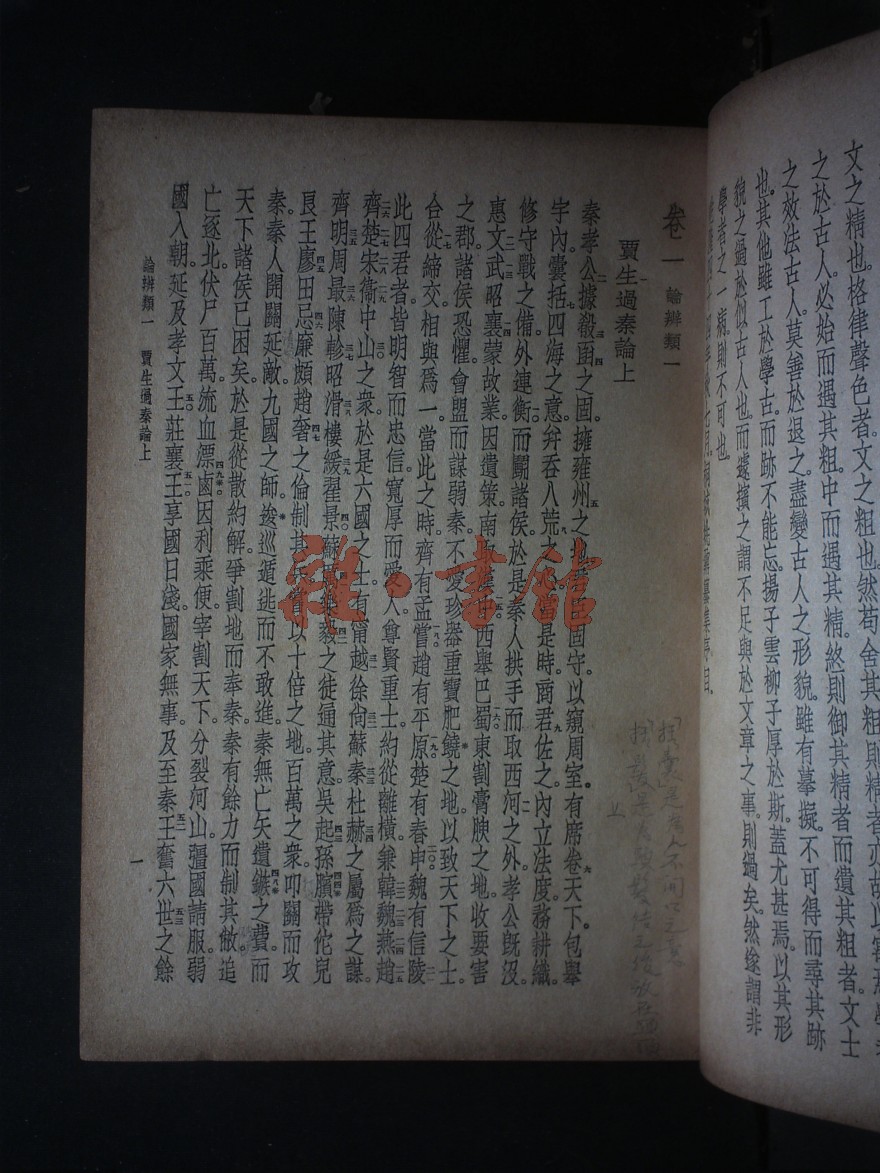 文之精也。格律聲色者。文之粗也。然苟舍其粗。則精者亦胡以寓焉。學
之於古人。必始而遇其粗。中而遇其精。終則御其精者而遺其粗者。文士
之效法古人。莫善於退之。盡變古人之形貌。雖有摹擬。不可得而尋其跡
也。其他雖工於學古。而跡不能忘。揚子雲柳子厚於斯。蓋尤甚焉。以其形
貌之過於似古人也。而遽擯之。謂不足與於文章之事。則過矣。然遂謂非
學者之一病。則不可也。
四年秋七月。桐城姚鼐纂集序目。
卷一 論辨類一
賈生過秦論上
秦孝公據殽函之固。擁雍州之地。君臣固守。以窺周室。有席卷天下。包舉
宇內。囊括四海之意。并吞八荒之心。當是時。商君佐之。內立法度。務耕織。
修守戰之備。外連衡而鬬諸侯。於是秦人拱手而取西河之外。孝公既沒。
惠文武昭襄。蒙故業。因遺策。南取漢中。西舉巴蜀。東割膏腴之地。收要害
之郡。諸侯恐懼。會盟而謀弱秦。不愛珍器重寶肥饒之地。以致天下之士。
合從締交。相與爲一。當此之時。齊有孟嘗。趙有平原。楚有春申。魏有信陵。
此四君者。皆明智而忠信。寬厚而愛人。尊賢重士。約從離橫。兼韓魏燕趙
齊楚宋衞中山之衆。於是六國之士。有甯越徐尙蘇秦杜赫之屬爲之謀。
齊明周最陳軫昭滑樓緩翟景蘇厲樂毅之徒通其意。吳起孫臏帶佗兒
良王廖田忌廉頗趙奢之倫制其兵。嘗以十倍之地。百萬之衆。叩關而攻
秦。秦人開關延敵。九國之師。逡巡遁逃而不敢進。秦無亡矢遺鏃之費。而
天下諸侯已困矣。於是從散約解。爭割地而奉秦。秦有餘力而制其敝。追
亡逐北。伏尸百萬。流血漂鹵。因利乘便。宰割天下。分裂河山。彊國請服。弱
國入朝。延及孝文王莊襄王。享國日淺。國家無事。及至秦王。奮六世之餘
論辨類一 賈生過秦論上
一
雜·書館